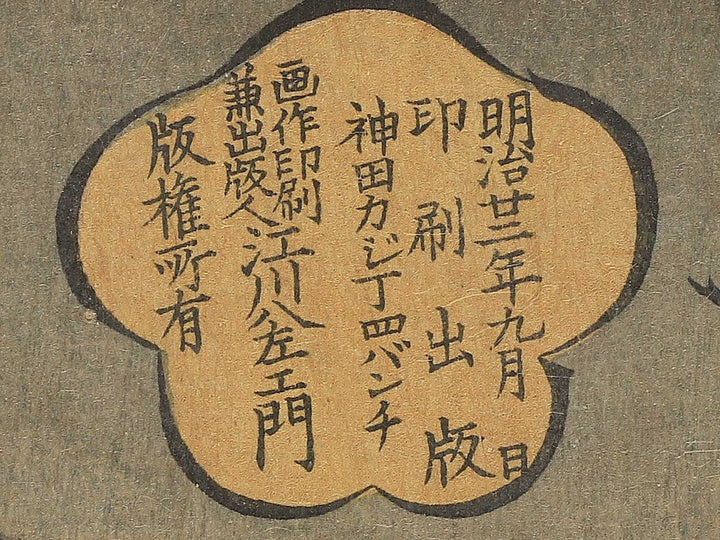 明治廿二年九月 日
印刷出版
神田カジ丁四バンチ
画作印刷
兼出版人
江川八左エ門
版権所有